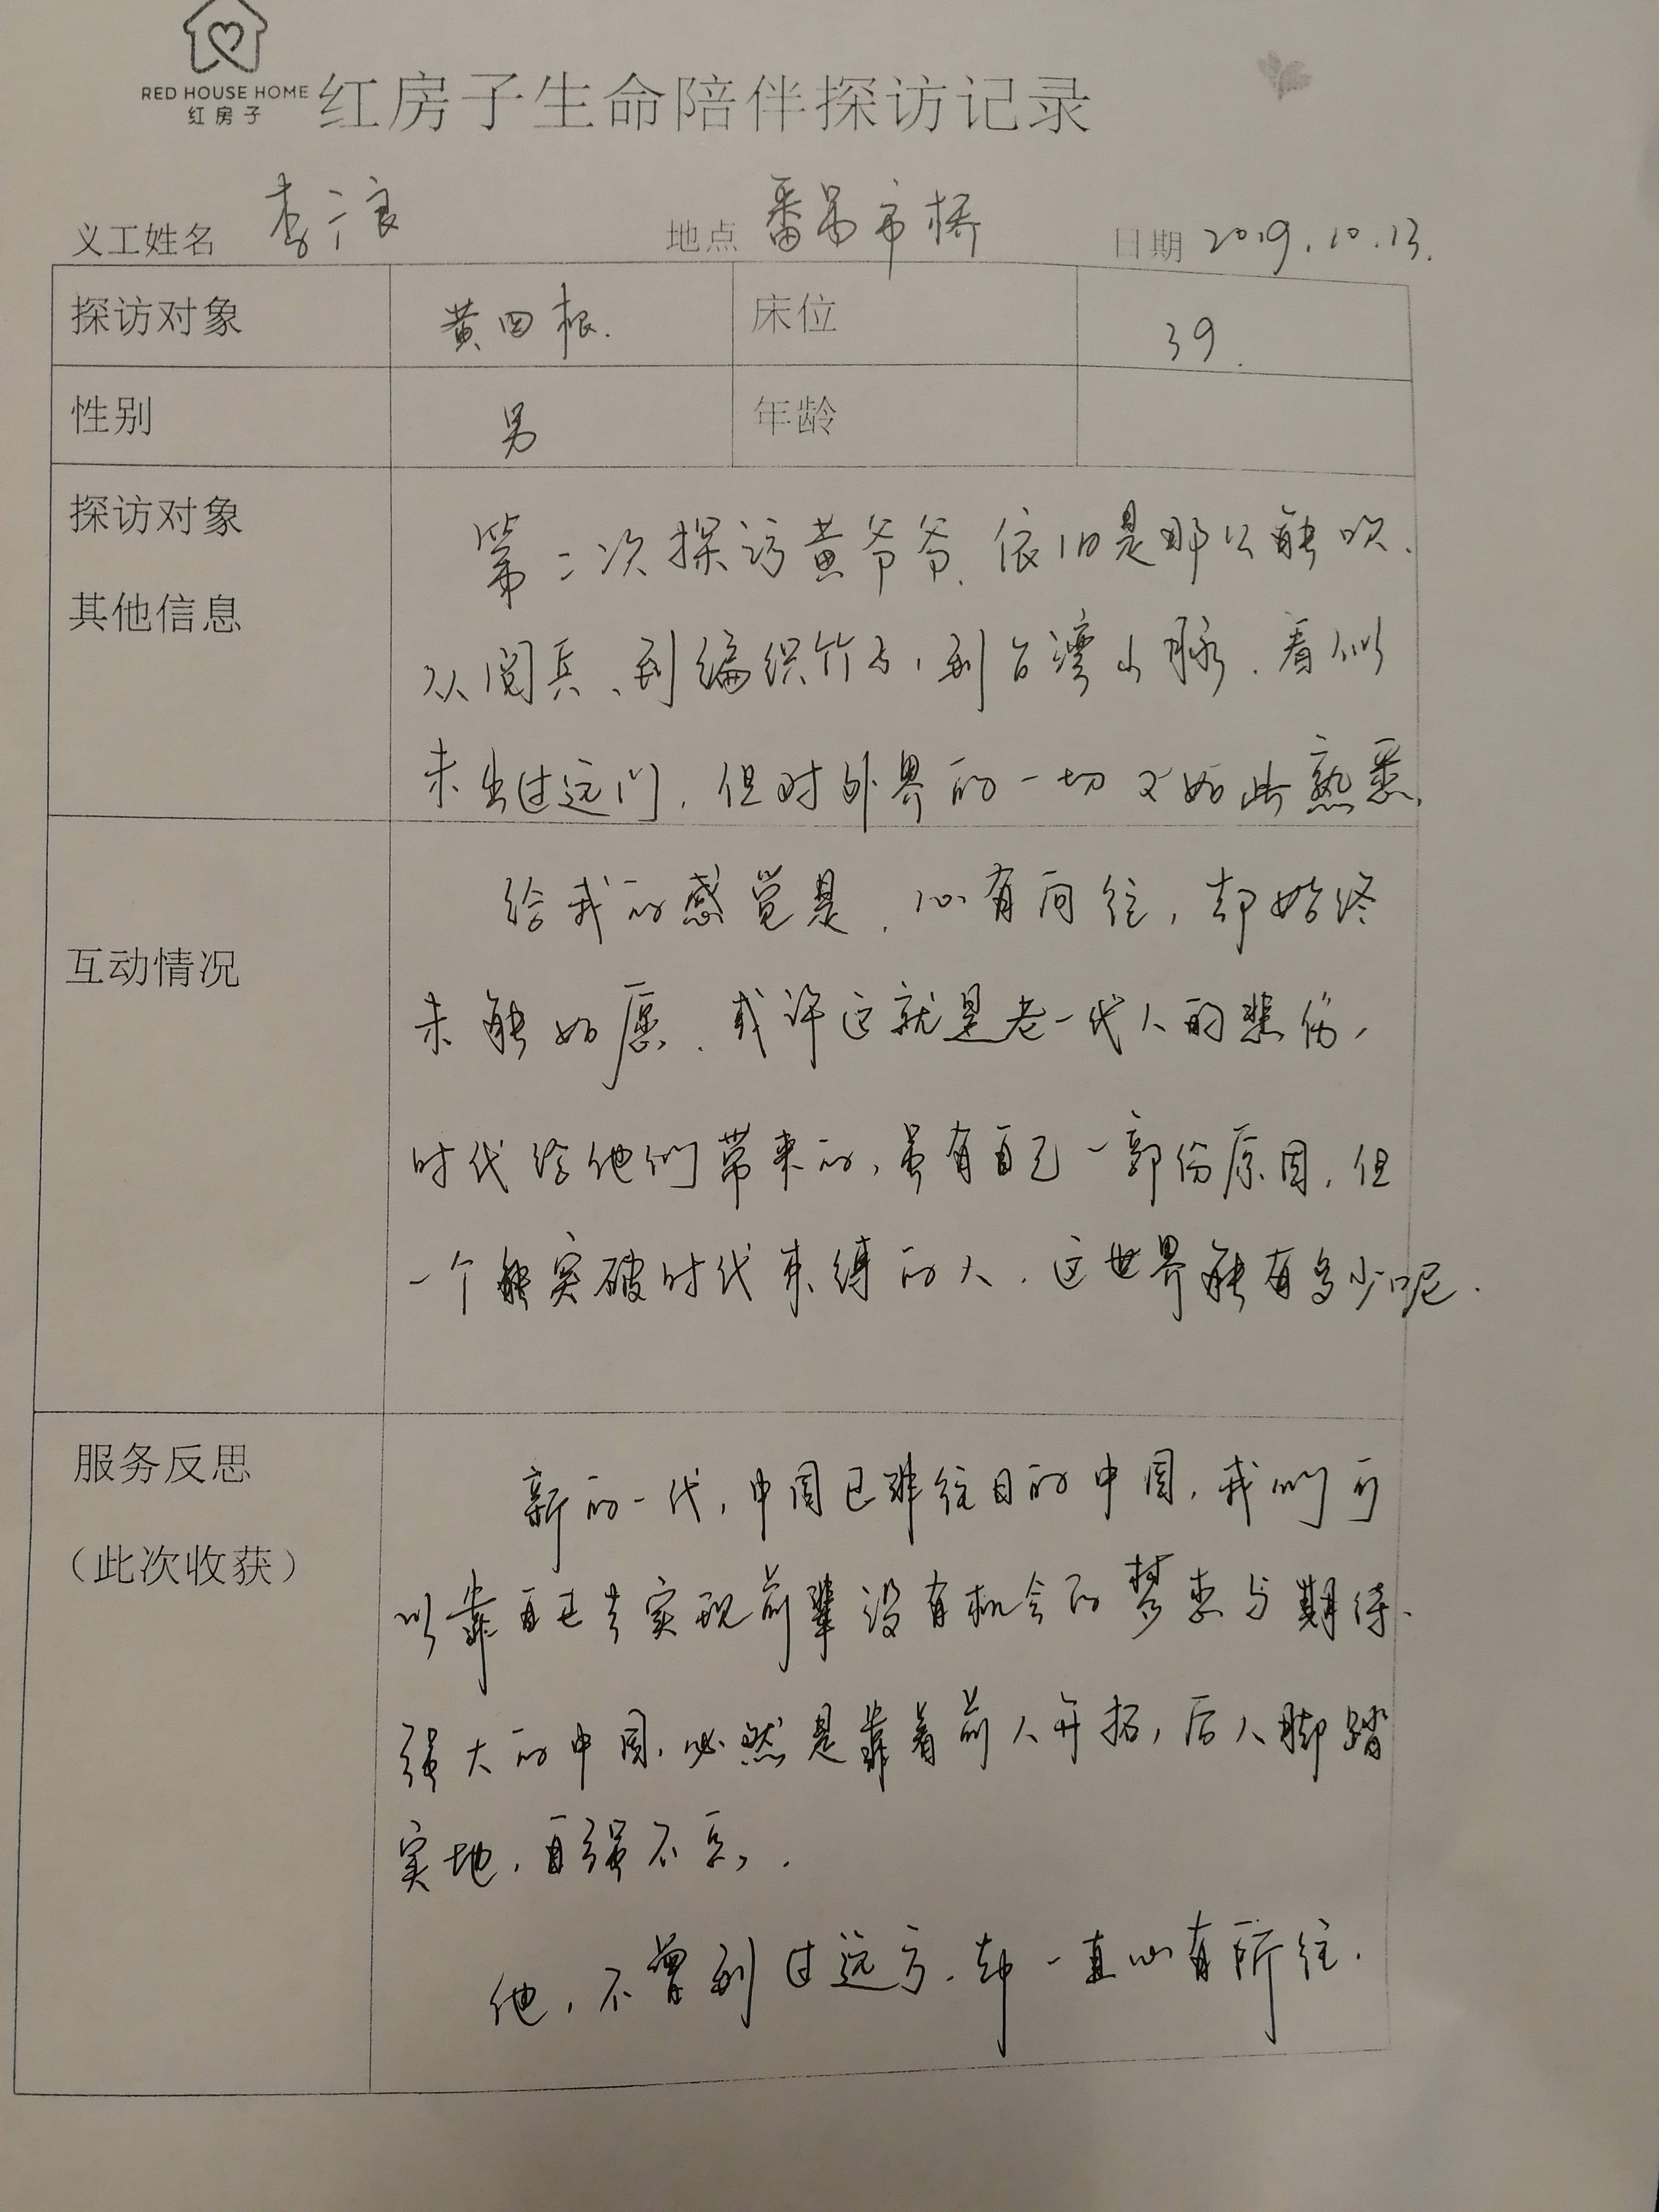 RED HOUSE HOME
红房子
红房子生命陪伴探访记录
义工姓名 李广良 地点 番禺市桥 日期 2019.10.13.
探访对象 黄四根. 床位 39.
性别 男 年龄
探访对象
其他信息
第二次探访黄爷爷、依旧是那么能吹.
从阅兵、到编织竹子,到台湾山脉.看似
未出过远门,但对外界的一切又如此熟悉,
互动情况
给我的感觉是,心有向往,却始终
未能如愿.或许这就是老一代人的悲伤,
时代给他们带来的,虽有自己一部份原因,但
一个能突破时代束缚的人.这世界能有多少呢.
服务反思
(此次收获)
新的一代,中国已非往日的中国,我们可
以靠自己去实现前辈没有机会的梦想与期待.
强大的中国,必然是靠着前人开拓,后人脚踏
实地,自强不息.
他,不曾到过远方.却一直心有所往.